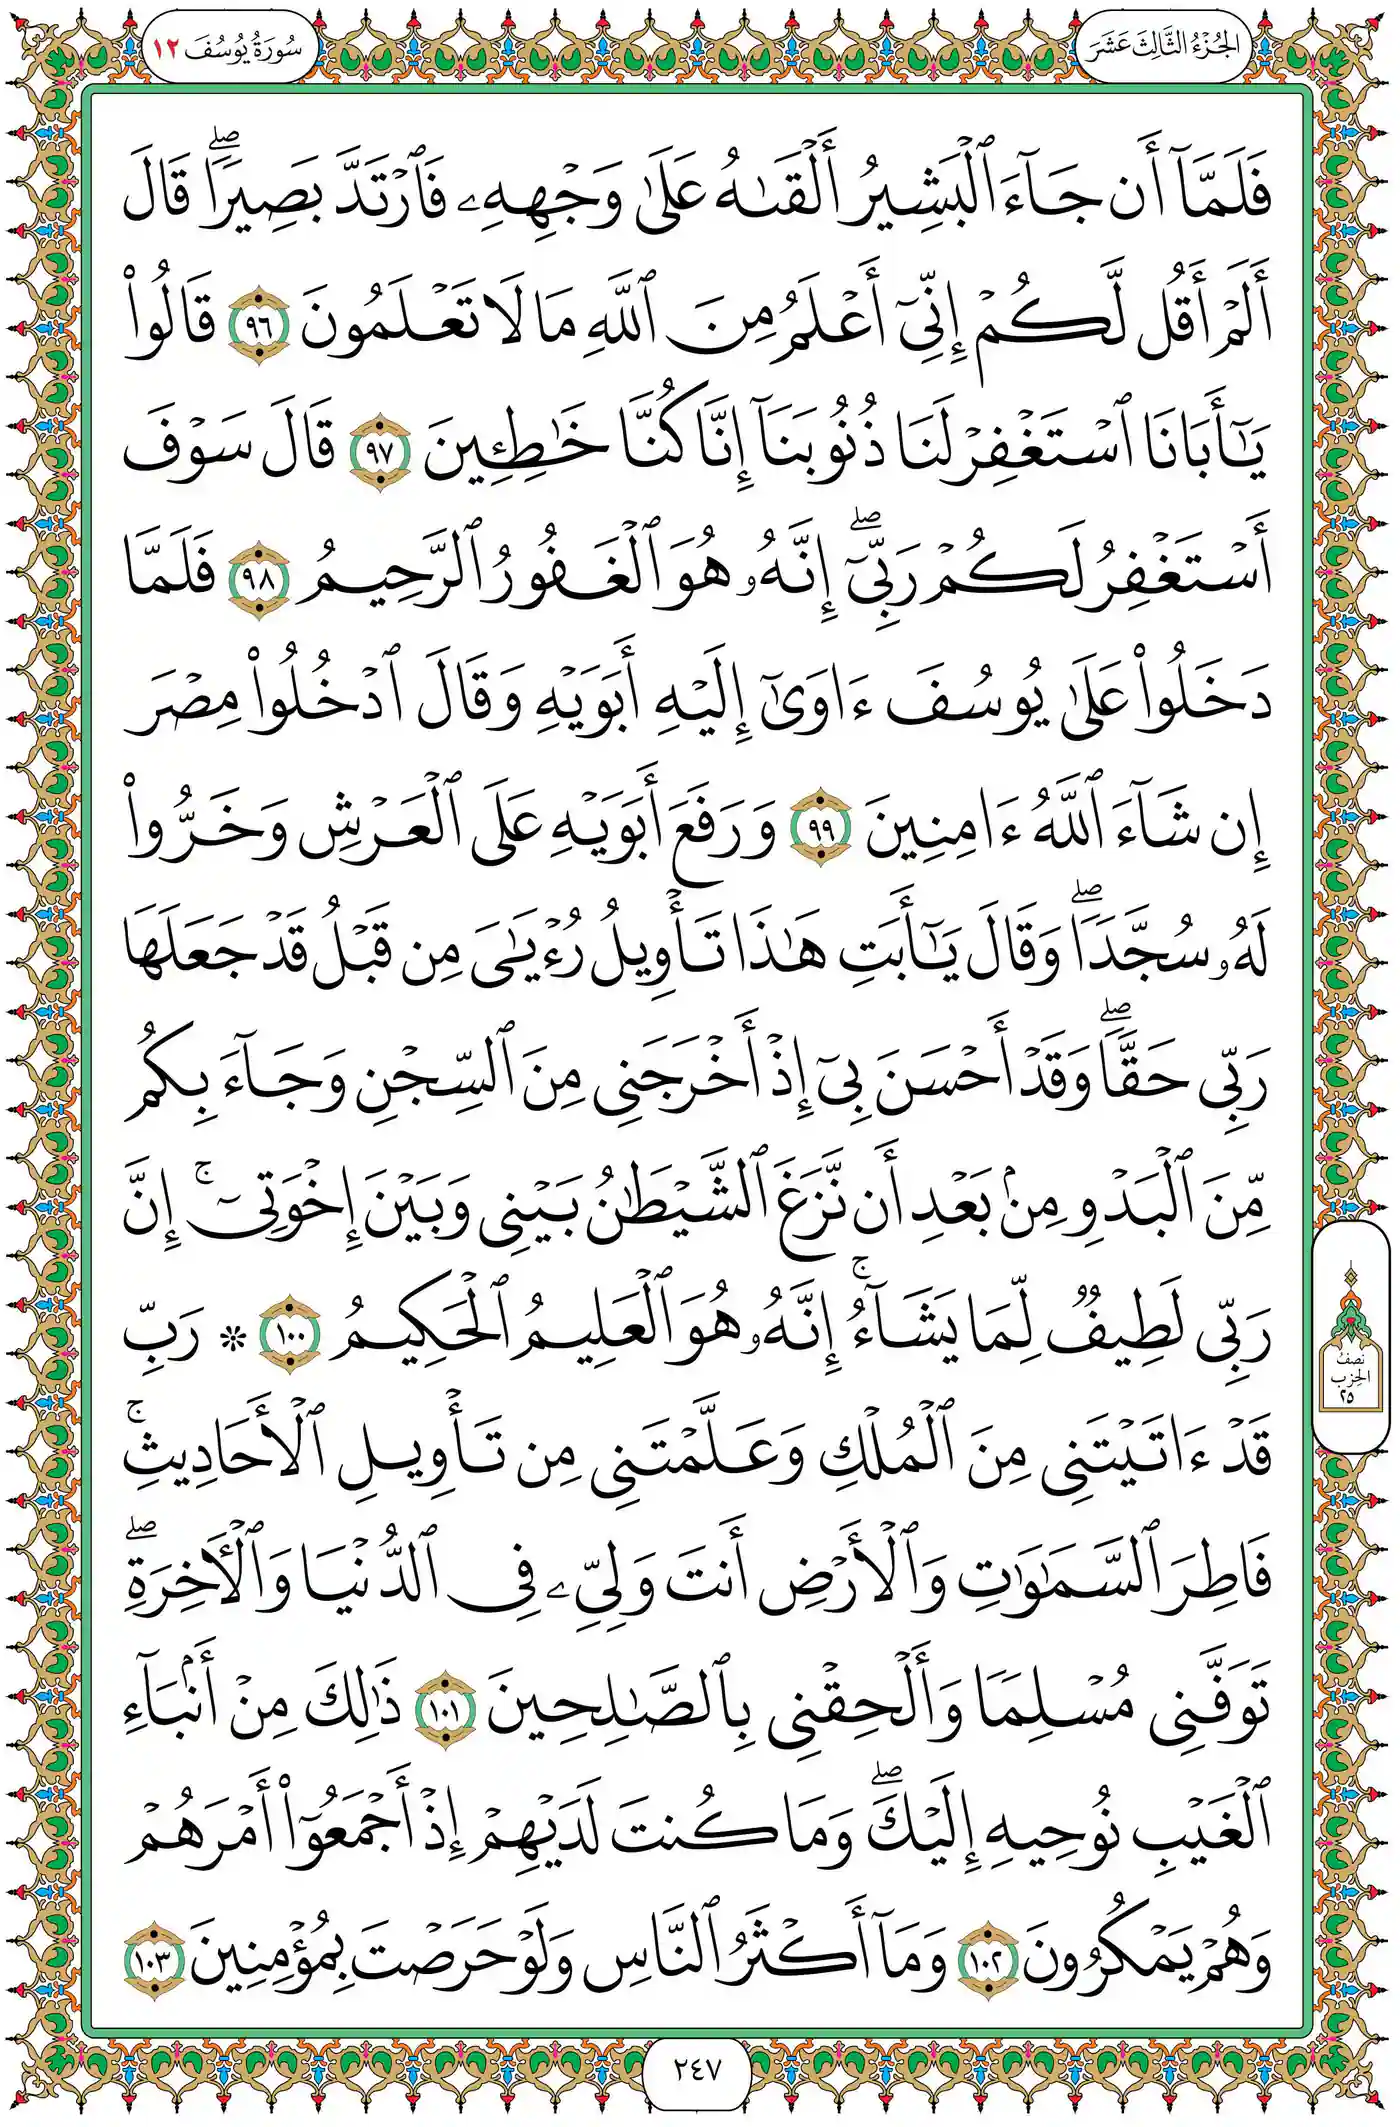 الجزء الثالث عشر
سورة يوسف ١٢
فَلَمَّآ أَن جَآءَ ٱلْبَشِيرُ أَلْقَىٰهُ عَلَىٰ وَجْهِهِۦ فَٱرْتَدَّ بَصِيرًاۖ قَالَ
أَلَمْ أَقُل لَّكُمْ إِنِّىٓ أَعْلَمُ مِنَ ٱللَّهِ مَا لَا تَعْلَمُونَ ٩٦ قَالُوا۟
يَـٰٓأَبَانَا ٱسْتَغْفِرْ لَنَا ذُنُوبَنَآ إِنَّا كُنَّا خَـٰطِـِٔينَ ٩٧ قَالَ سَوْفَ
أَسْتَغْفِرُ لَكُمْ رَبِّىٓۖ إِنَّهُۥ هُوَ ٱلْغَفُورُ ٱلرَّحِيمُ ٩٨ فَلَمَّا
دَخَلُوا۟ عَلَىٰ يُوسُفَ ءَاوَىٰٓ إِلَيْهِ أَبَوَيْهِ وَقَالَ ٱدْخُلُوا۟ مِصْرَ
إِن شَآءَ ٱللَّهُ ءَامِنِينَ ٩٩ وَرَفَعَ أَبَوَيْهِ عَلَى ٱلْعَرْشِ وَخَرُّوا۟
لَهُۥ سُجَّدًاۖ وَقَالَ يَـٰٓأَبَتِ هَـٰذَا تَأْوِيلُ رُءْيَـٰىَ مِن قَبْلُ قَدْ جَعَلَهَا
رَبِّى حَقًّاۖ وَقَدْ أَحْسَنَ بِىٓ إِذْ أَخْرَجَنِى مِنَ ٱلسِّجْنِ وَجَآءَ بِكُم
مِّنَ ٱلْبَدْوِ مِنۢ بَعْدِ أَن نَّزَغَ ٱلشَّيْطَـٰنُ بَيْنِى وَبَيْنَ إِخْوَتِىٓۚ إِنَّ
رَبِّى لَطِيفٌ لِّمَا يَشَآءُۚ إِنَّهُۥ هُوَ ٱلْعَلِيمُ ٱلْحَكِيمُ ١٠٠ * رَبِّ
قَدْ ءَاتَيْتَنِى مِنَ ٱلْمُلْكِ وَعَلَّمْتَنِى مِن تَأْوِيلِ ٱلْأَحَادِيثِۚ
فَاطِرَ ٱلسَّمَـٰوَٰتِ وَٱلْأَرْضِ أَنتَ وَلِىِّۦ فِى ٱلدُّنْيَا وَٱلْـَٔاخِرَةِۖ
تَوَفَّنِى مُسْلِمًا وَأَلْحِقْنِى بِٱلصَّـٰلِحِينَ ١٠١ ذَٰلِكَ مِنْ أَنۢبَآءِ
ٱلْغَيْبِ نُوحِيهِ إِلَيْكَۖ وَمَا كُنتَ لَدَيْهِمْ إِذْ أَجْمَعُوٓا۟ أَمْرَهُمْ
وَهُمْ يَمْكُرُونَ ١٠٢ وَمَآ أَكْثَرُ ٱلنَّاسِ وَلَوْ حَرَصْتَ بِمُؤْمِنِينَ ١٠٣
نصف
الحزب
٢٥
٢٤٧